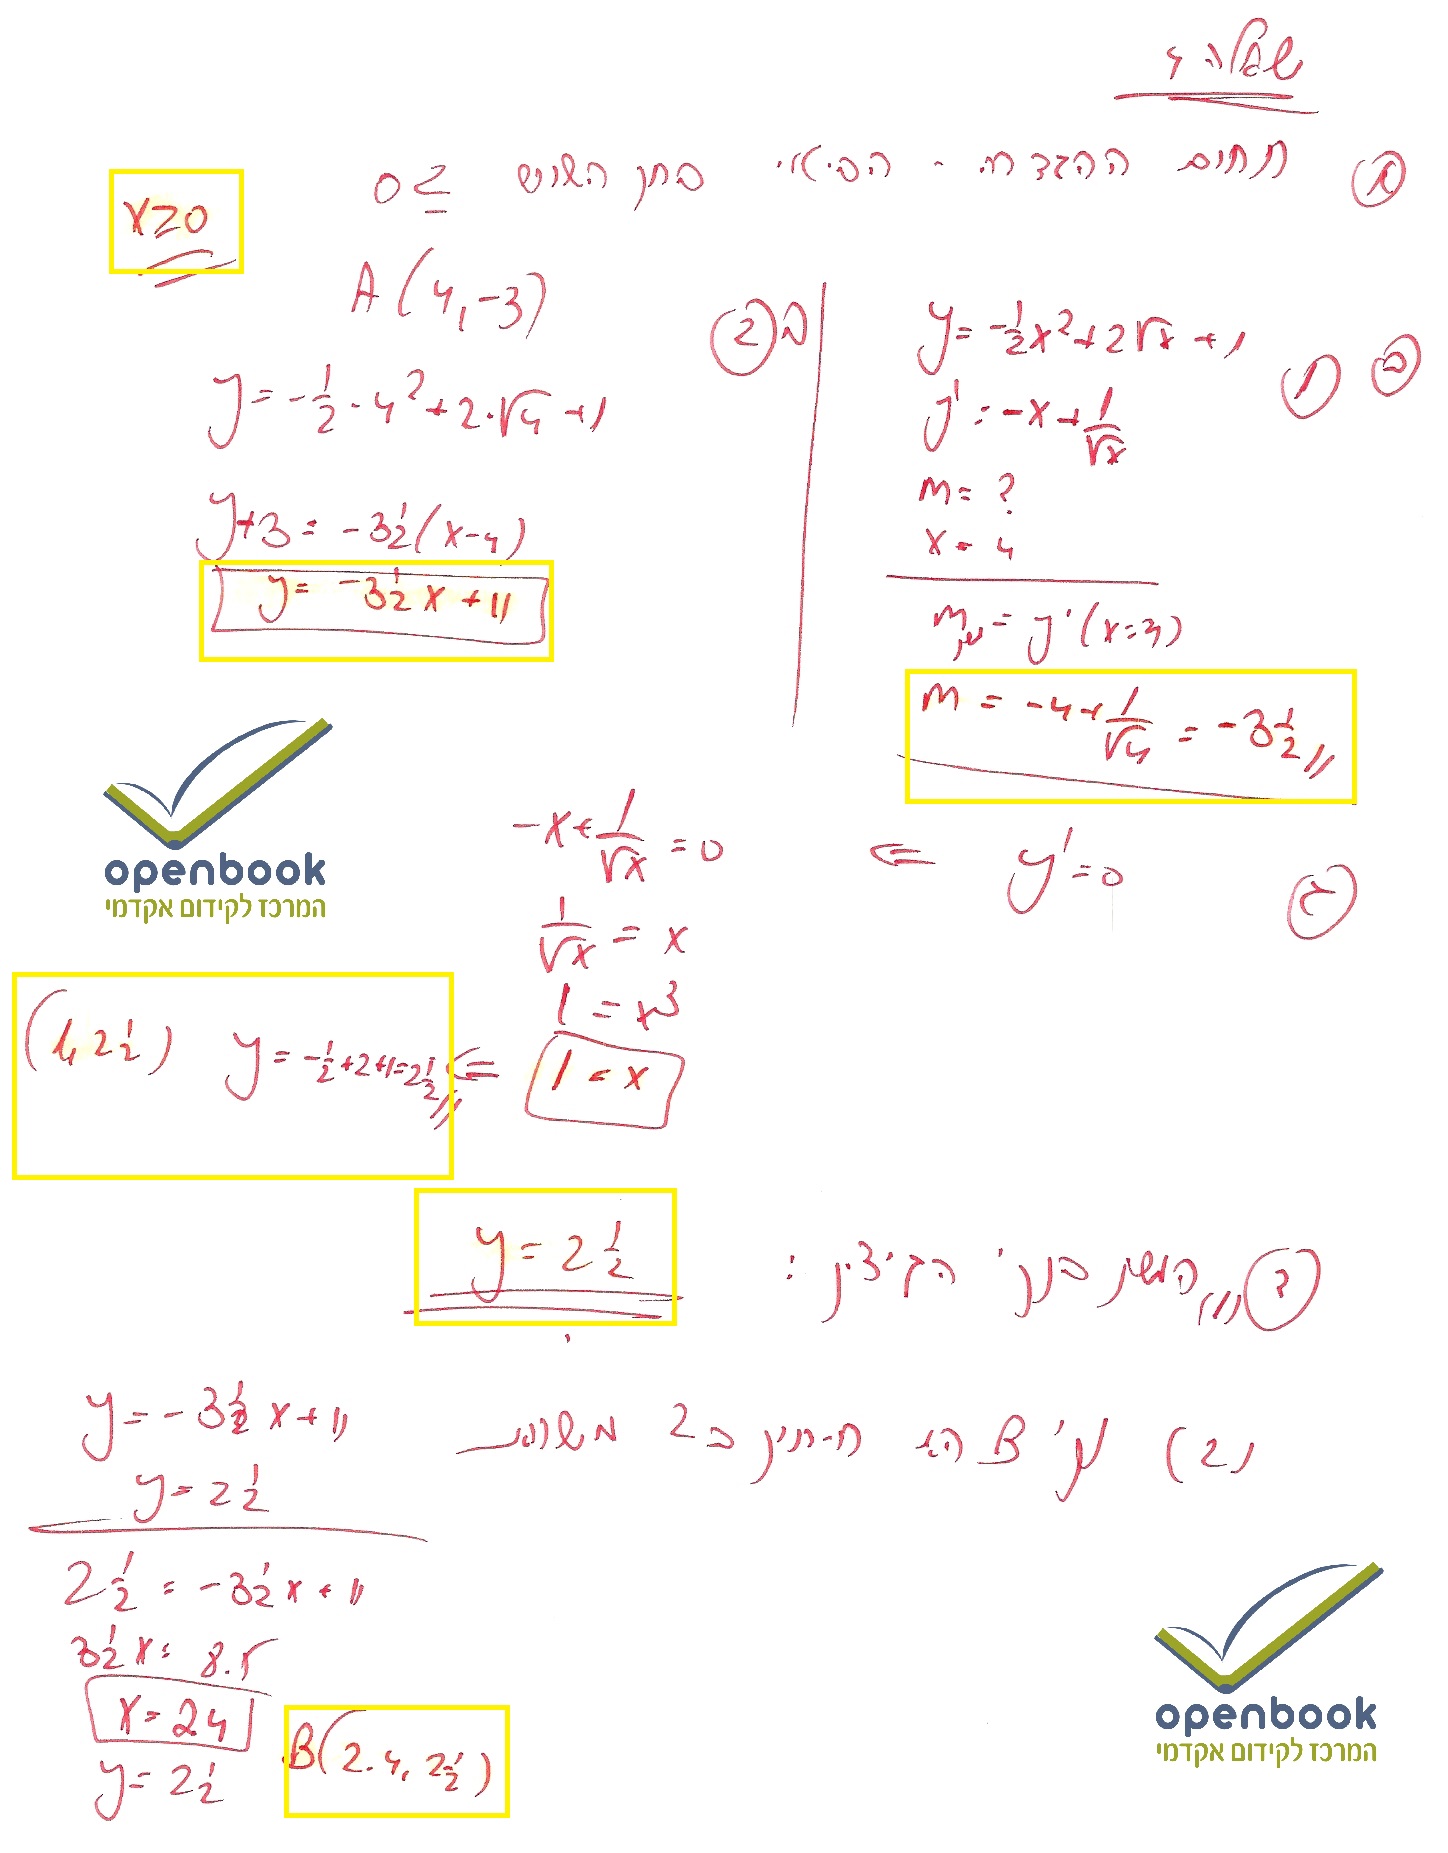 שאלה 4
א תחום ההגדרה - הביטוי בתוך השורש ≥ 0
x≥0
ב 1
y = -½x² + 2√x + 1
y' = -x + 1/√x
m = ?
x = 4
m = y'(x=4)
m = -4 + 1/√4 = -3½
ב 2
A(4, -3)
y = -½·4² + 2·√4 + 1
y+3 = -3½(x-4)
y = -3½x + 11
ג y' = 0 ⇐ -x + 1/√x = 0
1/√x = x
1 = x³
1 = x ⇒ y = -½+2+1 = 2½ (1, 2½)
openbook
המרכז לקידום אקדמי
ד (1) המשיק בנק' הקיצון :
y = 2½
(2) נק' B היא חיתוך ב 2 משוואות
y = -3½x + 11
y = 2½
2½ = -3½x + 11
3½x = 8.5
x = 24
y = 2½
B(2.4, 2½)
openbook
המרכז לקידום אקדמי